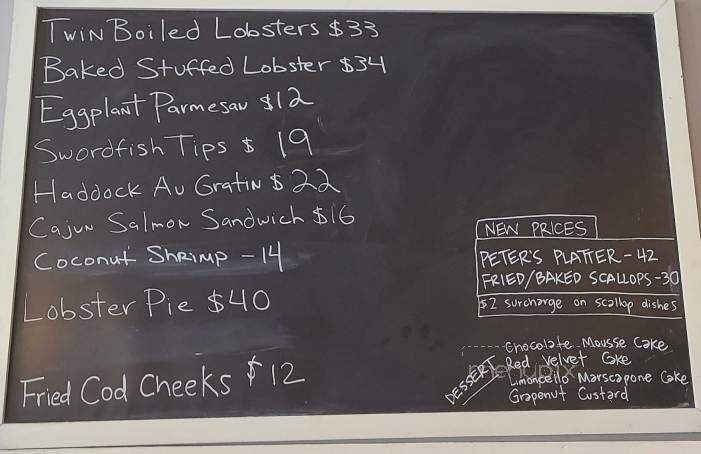 Twin Boiled Lobsters $33
Baked Stuffed Lobster $34
Eggplant Parmesan $12
Swordfish Tips $ 19
Haddock Au Gratin $22
Cajun Salmon Sandwich $16
Coconut Shrimp - 14
Lobster Pie $40
Fried Cod Cheeks $12
NEW PRICES
PETER'S PLATTER - 42
FRIED/BAKED SCALLOPS - 30
$2 surcharge on scallop dishes
DESSERT
Chocolate Mousse Cake
Red Velvet Cake
Limoncello Marscapone Cake
Grapenut Custard
menupix